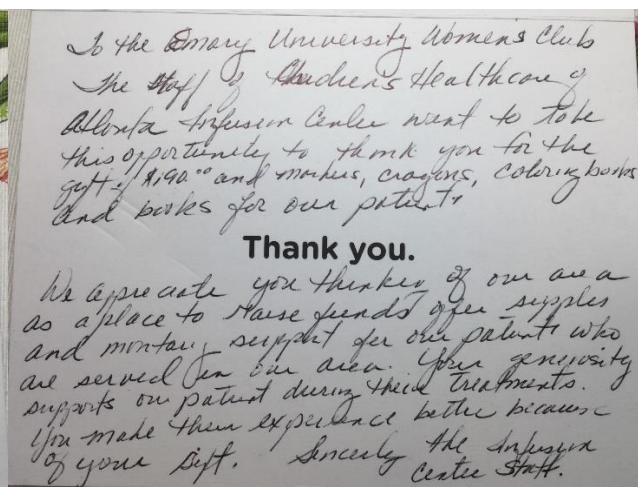 To the Emory University Women's Club
The staff of Childrens Healthcare of
Atlanta Infusion Center want to take
this opportunity to thank you for the
gift of $190.00 and markers, crayons, coloring books
and books for our patients
Thank you.
We appreciate you thinking of our area
as a place to raise funds offer supplies
and montary support for our patients who
are served in our area. Your generosity
supports our patient during their treatments.
You made their experience better because
of your gift. Sincerly the Infusion
Center Staff.